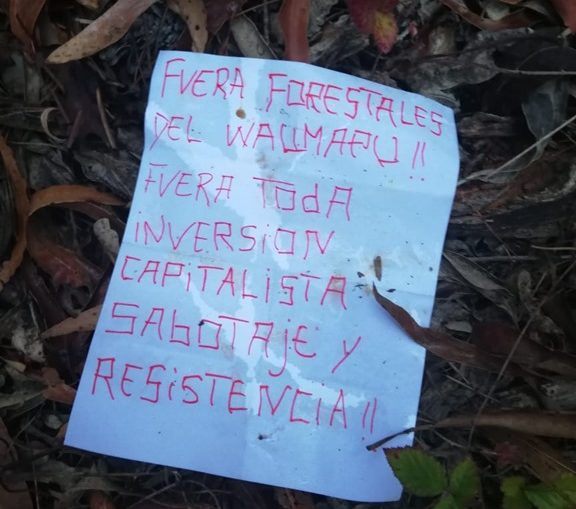 FUERA FORESTALES
DEL WAUMAPU!!
FUERA TOdA
iNVERSiON
CAPiTALiSTA
SAbOTAjE Y
RESiSTENCiA!!